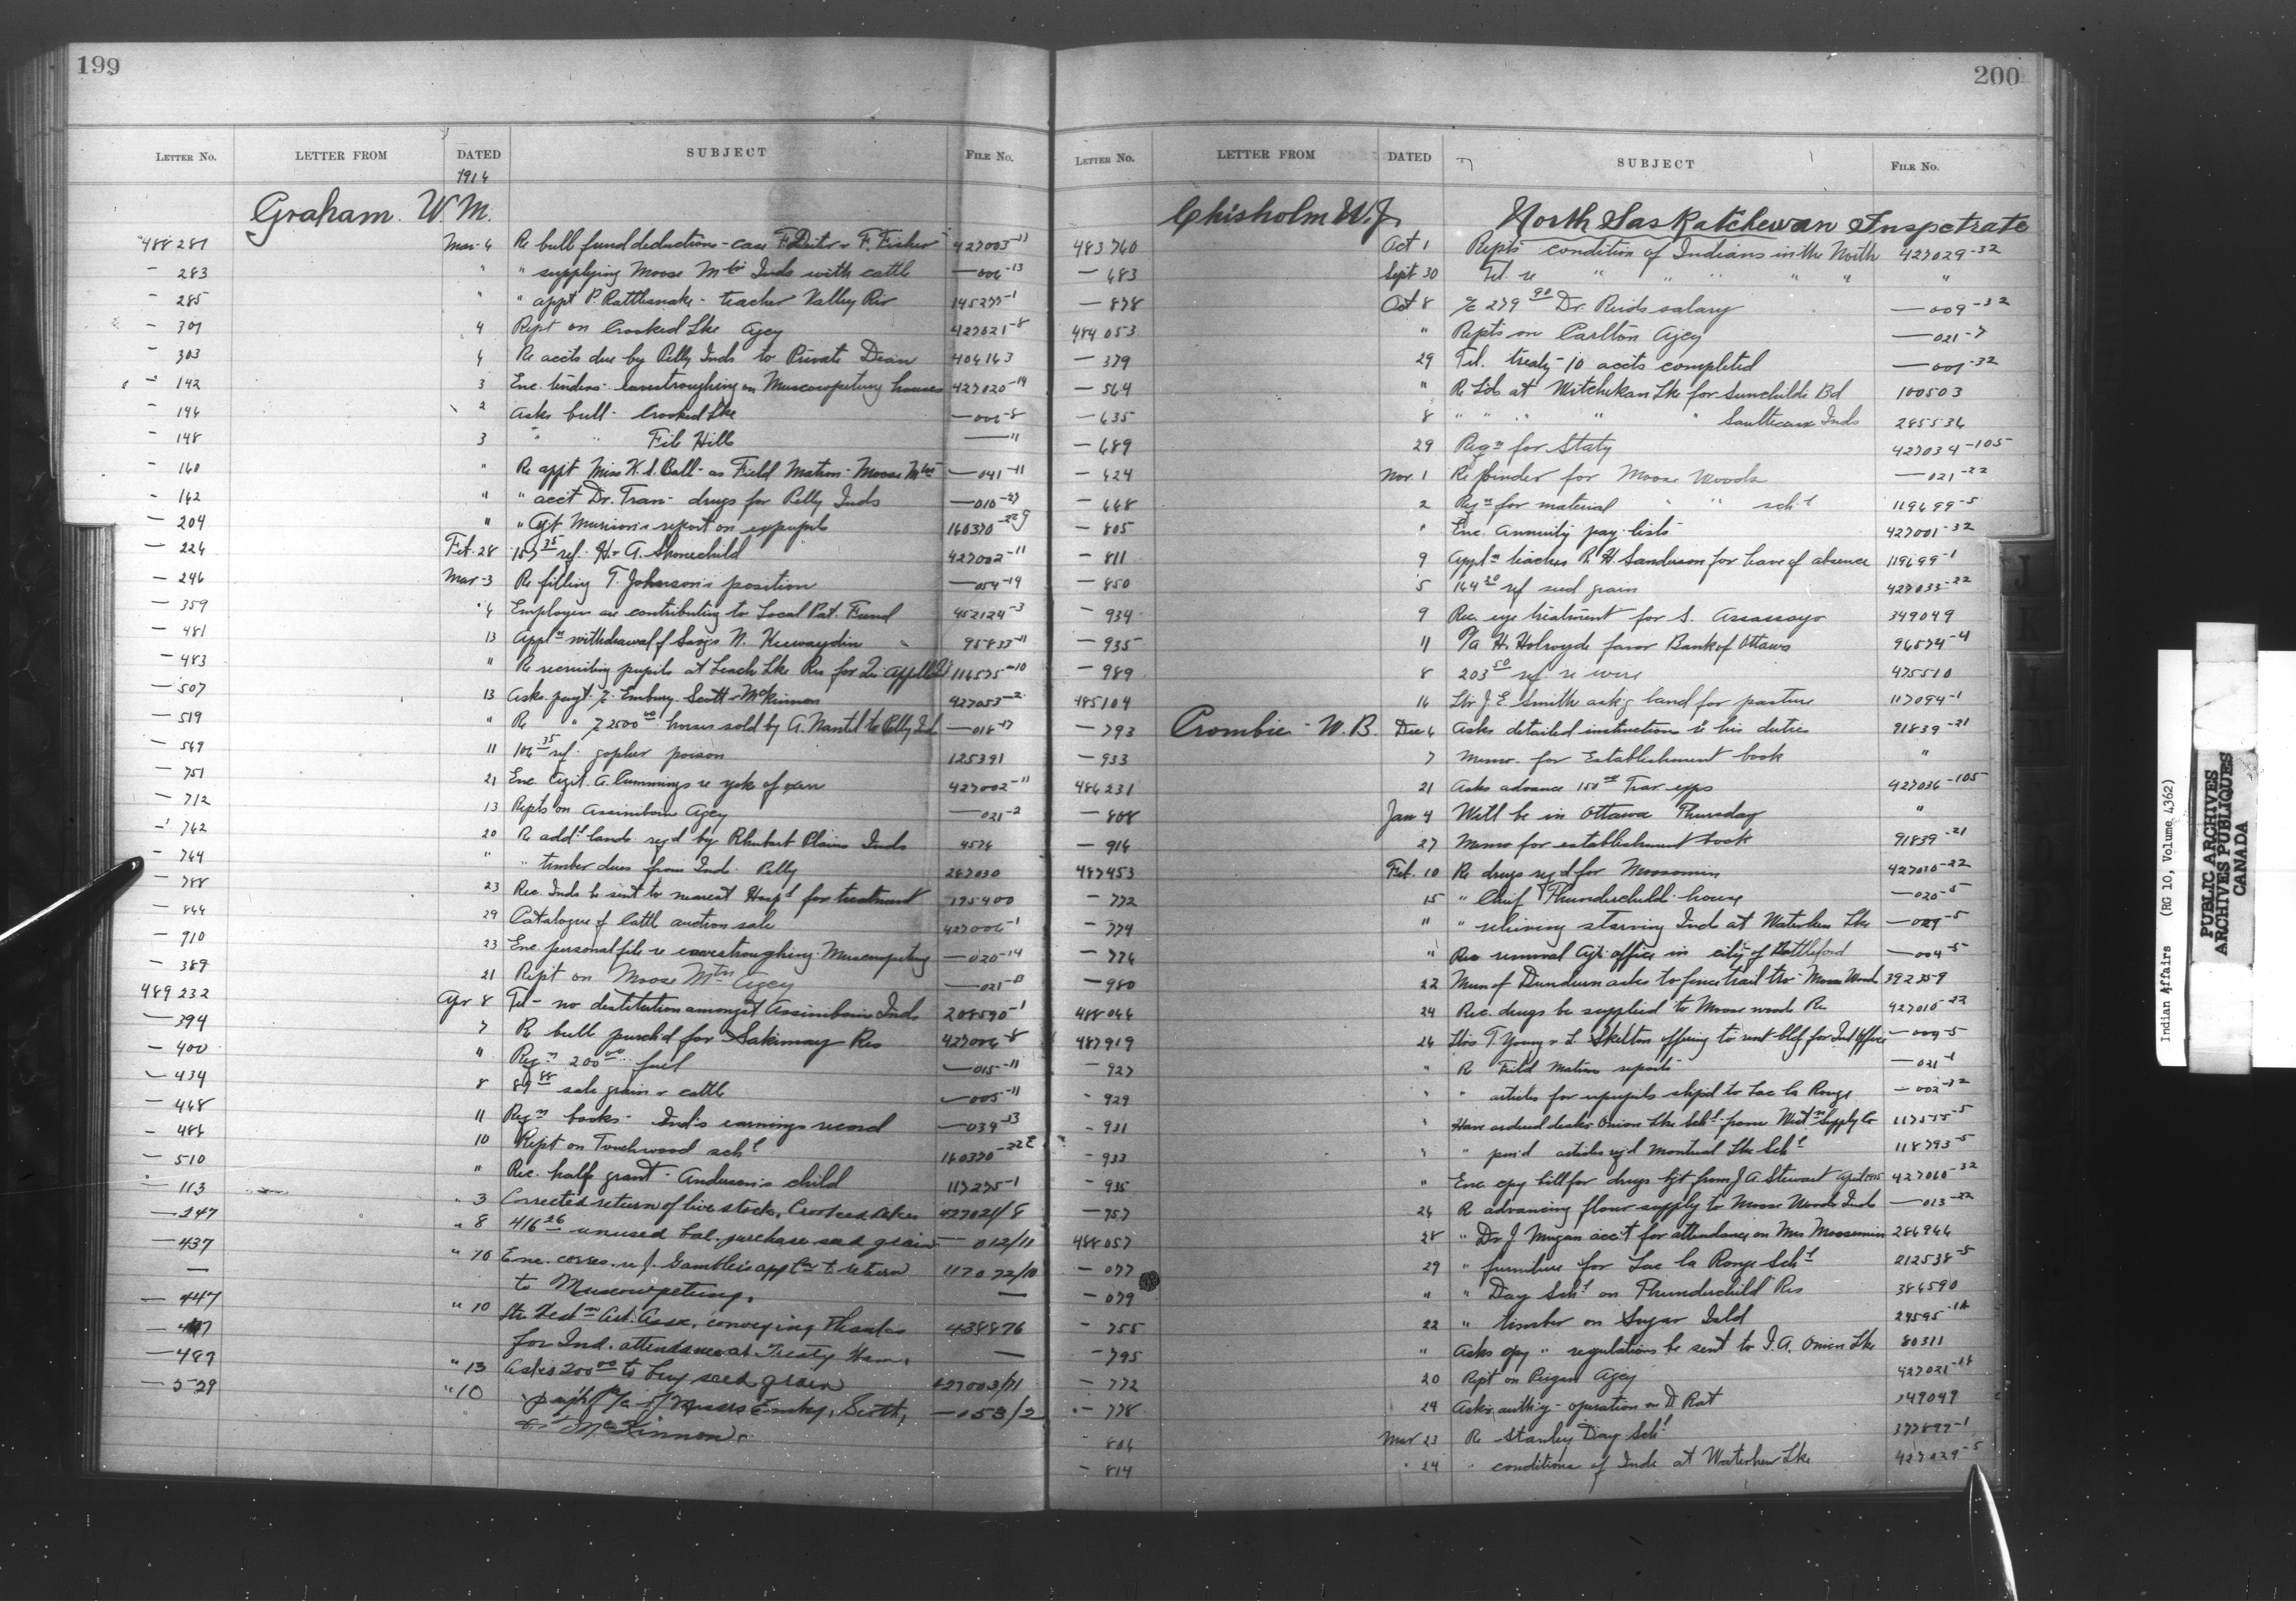 199
LETTER NO. LETTER FROM DATED SUBJECT FILE No.
1916
Graham W. M.
488281 Mar 6 Re bull fund deductions - case F. Deiter & F. Fisher 427003-11
— 283 " " supplying Moose Mtn Inds with cattle — 006-13
— 285 " " appt P. Rattlesnake - teacher Valley Riv 145277-1
— 301 4 Rept on Crooked Lke Agcy 427021-8
— 303 4 Re accts due by Pelly Inds to Private Dean 404143
— 142 3 Enc. tenders eavestroughing on Muscowpetung houses 427020-14
— 146 2 Asks bull - Crooked Lke — 006-8
— 148 3 " " File Hills — " 
— 160 " Re appt Miss K. S. Ball - as Field Matron - Moose Mtn — 041-11
— 162 " " acct Dr. Tran - drugs for Pelly Inds — 010-27
— 204 " " Agt Murison's report on expupils 160370-22
— 226 Feb. 28 157.35 ref. H. A. Stonechild 427002-11
— 246 Mar 3 Re filling T. Johnson's position — 054-19
— 359 4 Employees are contributing to Local Pat. Fund 452124-3
— 481 13 Appln withdrawal of Savgs N. Keewaydin 95833-11
— 483 " Re recruiting pupils at Leach Lke Res for Qu'Appelle 116575-10
— 507 13 Asks payt. Embury Scott & McKinnon 427053-2
— 519 " Re " 2500.00 horses sold by A. Nantel to Pelly Inds — 018-17
— 569 11 106.35 ref. gopher poison 125391
— 751 21 Enc. Agt. A. Cummings re yoke of oxen 427002-11
— 712 13 Repts on Assiniboin Agcy — 021-2
— 762 20 Re addl lands reqd by Rhubarb Plains Inds 4576
— 764 " " timber dues from Ind. Pelly 287030
— 788 23 Rec. Inds be sent to nearest Hospl for treatment 195400
— 866 29 Catalogue of Cattle auction sale 427006-1
— 910 23 Enc. personal file re eavestroughing Muscowpetung — 020-14
— 389 21 Rept on Moose Mtn Agcy — 021-13
489232 Apr 8 Tel - no destitution amongst Assiniboin Inds 208590-1
— 394 7 Re bull purch'd for Sakimay Res 427006-8
— 400 " Reqn 200.00 fuel — 015-11
— 434 8 89.88 sale grain & cattle — 005-11
— 468 11 Reqn books - Ind's earnings record — 039-13
— 486 10 Rept on Touchwood schl 160370-22
— 510 " Rec. half grant - Anderson's child 117275-1
— 113 " 3 Corrected return of live stock, Crooked Lakes 427021/8
— 247 " 8 416.26 unused bal. purchase seed grain — 012/11
— 437 " 10 Enc. corres. re J. Gamble's appln to return 117072/10
— to Muscowpetung. —
— 447 " 10 Ltr Westn Art. Assn. conveying thanks 438876
— 447 for Ind. attendance at Treaty Wem. —
— 487 " 13 Asks 200.00 to buy seed grain 427003/11
— 529 " 10 " payt of a/c of Messrs Embry, Scott, — 053/2
& McKinnon.
200
LETTER NO. LETTER FROM DATED SUBJECT FILE No.
Chisholm W. J. North Saskatchewan Inspectrate
483760 Oct 1 Repts condition of Indians in the North 427029-32
— 683 Sept 30 Tel. re " " " " " "
— 878 Oct 8 279.90 Dr. Reids salary — 009-32
484053 " Repts on Carlton Agcy — 021-7
— 379 29 Tel. treaty - 10 accts completed — 001-32
— 564 " Re Lds at Witchekan Lke for Sunchilds Bd 100503
— 635 8 " " " " " Saulteaux Inds 285536
— 689 29 Reqn for Staty 427034-105
— 424 Nov. 1 Re binder for Moose Woods — 021-22
— 668 2 Reqn for material " " schl 119699-5
— 805 " Enc. Annuity pay-lists 427001-32
— 811 9 Appln teacher R. H. Sanderson for leave of absence 119699-1
— 850 5 164.20 ref seed grain 427033-22
— 934 9 Rec. eye treatment for S. Assassayo 349049
— 935 11 P/a H. Holroyde favor Bank of Ottawa 96574-4
— 989 8 203.50 ref. re wire 475510
485104 16 Ltr J. E. Smith askg land for pasture 117094-1
— 793 Crombie - W. B. Dec 6 Asks detailed instructions re his duties 91839-21
— 933 7 Memo. for Establishment book "
486231 21 Asks advance 150.00 Trav exps 427036-105
— 808 Jan 4 Will be in Ottawa Thursday "
— 916 27 Memo for establishment book 91839-21
487453 Feb. 10 Re drugs reqd for Moosomin 427010-22
— 772 15 " Chief Thunderchild house — 020-5
— 774 " " relieving starving Inds at Waterhen Lke — 029-5
— 776 " Rec removal Agt. office in city of Battleford — 004-5
— 980 22 Mun of Dundurn asks to fence trail thro Moose Woods 392359
488046 24 Rec. drugs be supplied to Moose woods Res 427010-22
487919 26 Ltrs T. Young & L. Skelton offering to rent bldg for Ind Office — 009-5
— 927 " Re Field Matron reports — 021-1
— 929 " " articles for expupils shipd to Lac la Ronge — 002-32
— 931 " Have ordered desks Onion Lke Schl from Westn Supply Co 117555-5
— 933 " " pen'd articles reqd Montreal Lke Schl 118793-5
— 935 " Enc. cpy bill for drugs bgt from J. A. Stewart April 1915 427060-32
— 757 26 Re advancing flour supply to Moose Woods Inds — 013-22
488057 28 " Dr. J. acc't for attendance on Mrs Moosomin 286966
— 077 29 " furniture for Lac la Ronge Schl 212538-5
— 079 " " Day Schl on Thunderchild Res 386590
— 755 22 " timber on Sugar Isld 24595-1A
— 795 " Asks cpy " regulations be sent to I. A. Onion Lke 80311
— 772 20 Rept on Peigan Agcy 427021-18
— 778 29 Asks auth'y - operation on D. Rat 349049
806 Mar 23 Re Stanley Day Schl 377897-1
— 814 " 24 " conditions of Inds at Waterhen Lke 427029-5
Indian Affairs (RG 10, Volume 4362)
PUBLIC ARCHIVES
ARCHIVES PUBLIQUES
CANADA
J